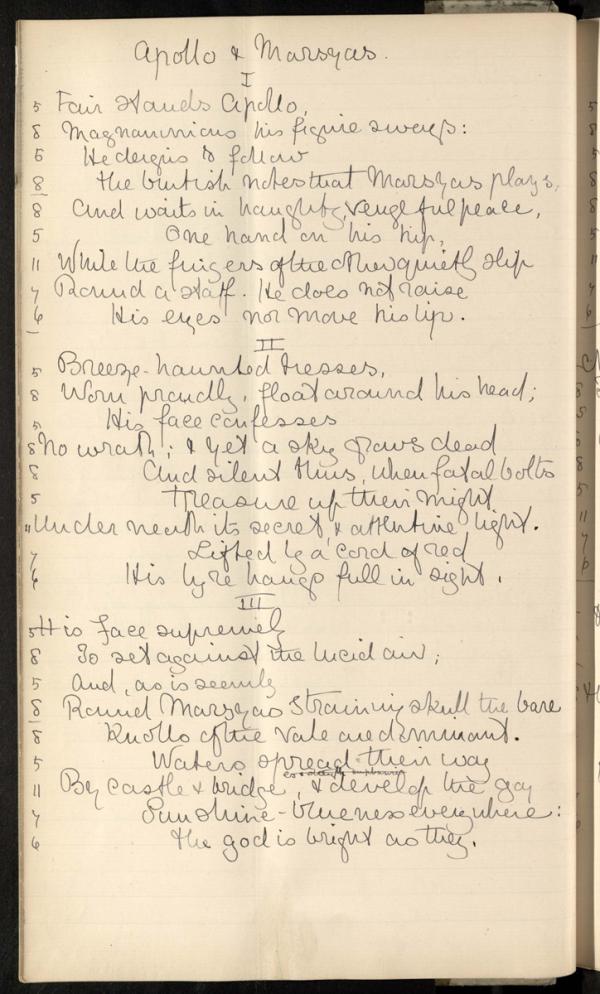 Apollo & Marsyas.
I
5 Fair stands Apollo,
8 Magnanimous his figure sways:
5 He deigns to follow
8 The brutish notes that Marsyas plays,
8 And waits in haughty, vengeful peace,
5 One hand on his hip,
11 While the fingers of the other quietly slip
7 Round a staff. He does not raise
6 His eyes nor move his lip.
II
5 Breeze-haunted tresses,
8 Worn proudly, float around his head;
5 His face confesses
8 No wrath; & yet a sky grows dead
8 And silent thus, when fatal bolts
5 Treasure up their might
11 Underneath its secret, & attentive light.
7 Lifted by a cord of red
6 His lyre hangs full in sight.
III
5 His face supremely
8 Is set against the lucid air;
5 And, as is seemly
8 Round Marsyas' straining skull the bare
8 Knolls of the vale are dominant.
5 Waters spread their way
11 By castle & bridge, & develop the gay
7 Sunshine-blueness everywhere:
6 The god is bright as they.